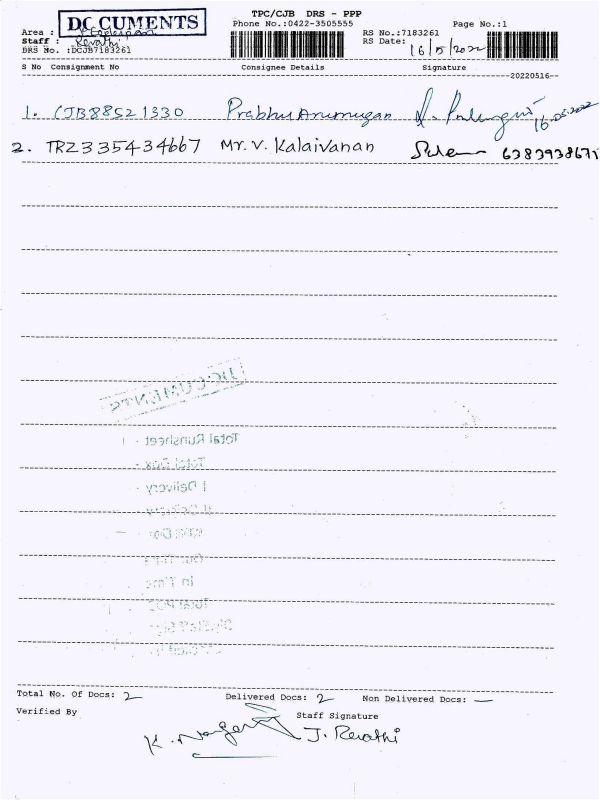 TPC/CJB DRS - PPP
DOCUMENTS
Phone No.:0422-3505555
Page No.:1
Area :
RS No.:7183261
Staff : Revathi
RS Date: 16/5/2022
DRS No. :DCJB7183261
S No Consignment No Consignee Details Signature
20220516
1. CJB88521330 Prabhu Arumugan 16-05-2022
2. TRZ335434667 Mr. V. Kalaivanan
DOCUMENTS
Total Runsheet
Total Box
I Delivery
II Delivery
Our Time
In Time
Total POD
Total No. Of Docs: 2 Delivered Docs: 2 Non Delivered Docs: —
Verified By Staff Signature
J. Revathi